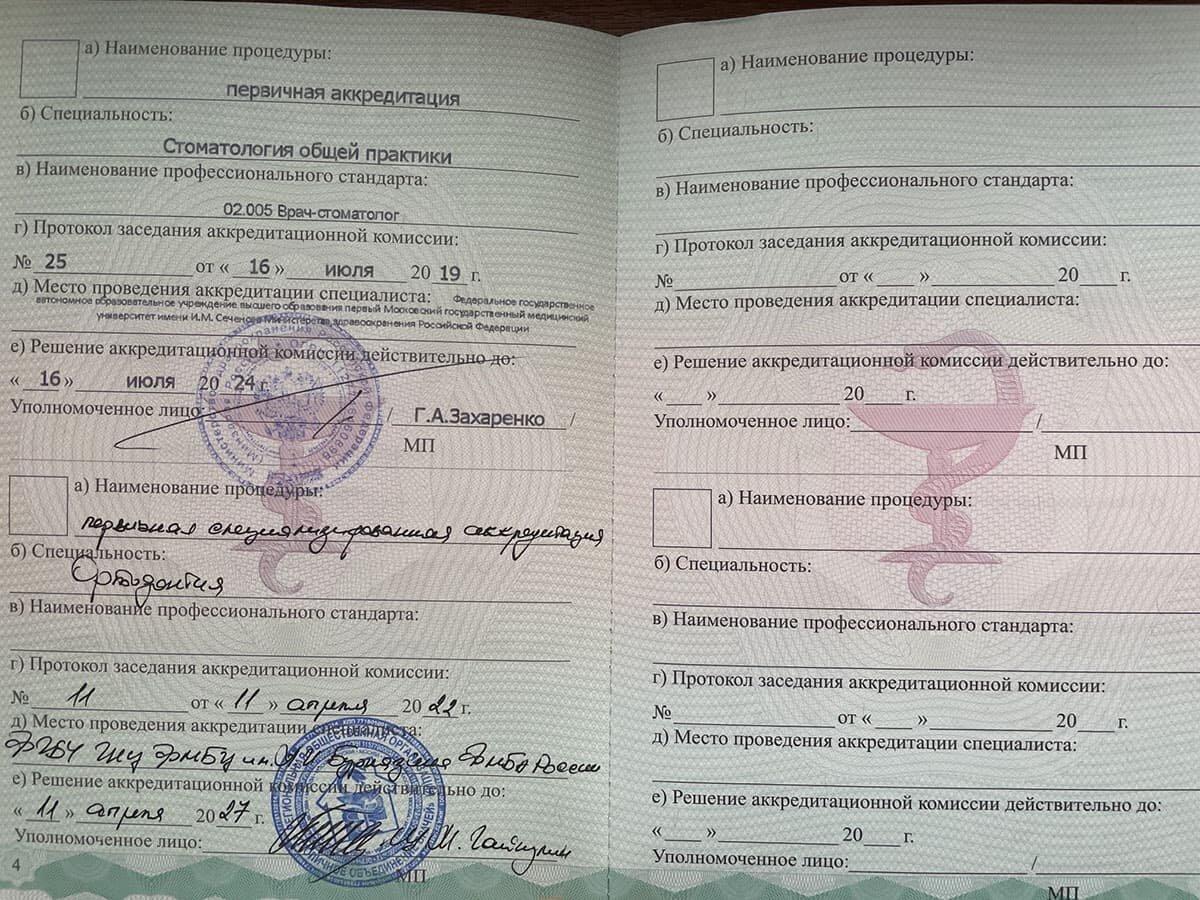 а) Наименование процедуры:
первичная аккредитация
б) Специальность:
Стоматология общей практики
в) Наименование профессионального стандарта:
02.005 Врач-стоматолог
г) Протокол заседания аккредитационной комиссии:
№ 25 от « 16 » июля 20 19 г.
д) Место проведения аккредитации специалиста: Федеральное государственное
автономное образовательное учреждение высшего образования первый Московский государственный медицинский
университет имени И.М. Сеченова Министерства здравоохранения Российской Федерации
е) Решение аккредитационной комиссии действительно до:
« 16 » июля 20 24 г.
Уполномоченное лицо: / Г.А.Захаренко /
МП
а) Наименование процедуры:
первичная специализированная аккредитация
б) Специальность:
Ортодонтия
в) Наименование профессионального стандарта:
г) Протокол заседания аккредитационной комиссии:
№ 11 от « 11 » апреля 20 22 г.
д) Место проведения аккредитации специалиста:
ФГБУ ФМБЦ им. Бурназяна ФМБА России
е) Решение аккредитационной комиссии действительно до:
« 11 » апреля 20 27 г.
Уполномоченное лицо:
МП
4
а) Наименование процедуры:
б) Специальность:
в) Наименование профессионального стандарта:
г) Протокол заседания аккредитационной комиссии:
№ от « » 20 г.
д) Место проведения аккредитации специалиста:
е) Решение аккредитационной комиссии действительно до:
« » 20 г.
Уполномоченное лицо: /
МП
а) Наименование процедуры:
б) Специальность:
в) Наименование профессионального стандарта:
г) Протокол заседания аккредитационной комиссии:
№ от « » 20 г.
д) Место проведения аккредитации специалиста:
е) Решение аккредитационной комиссии действительно до:
« » 20 г.
Уполномоченное лицо: /
МП